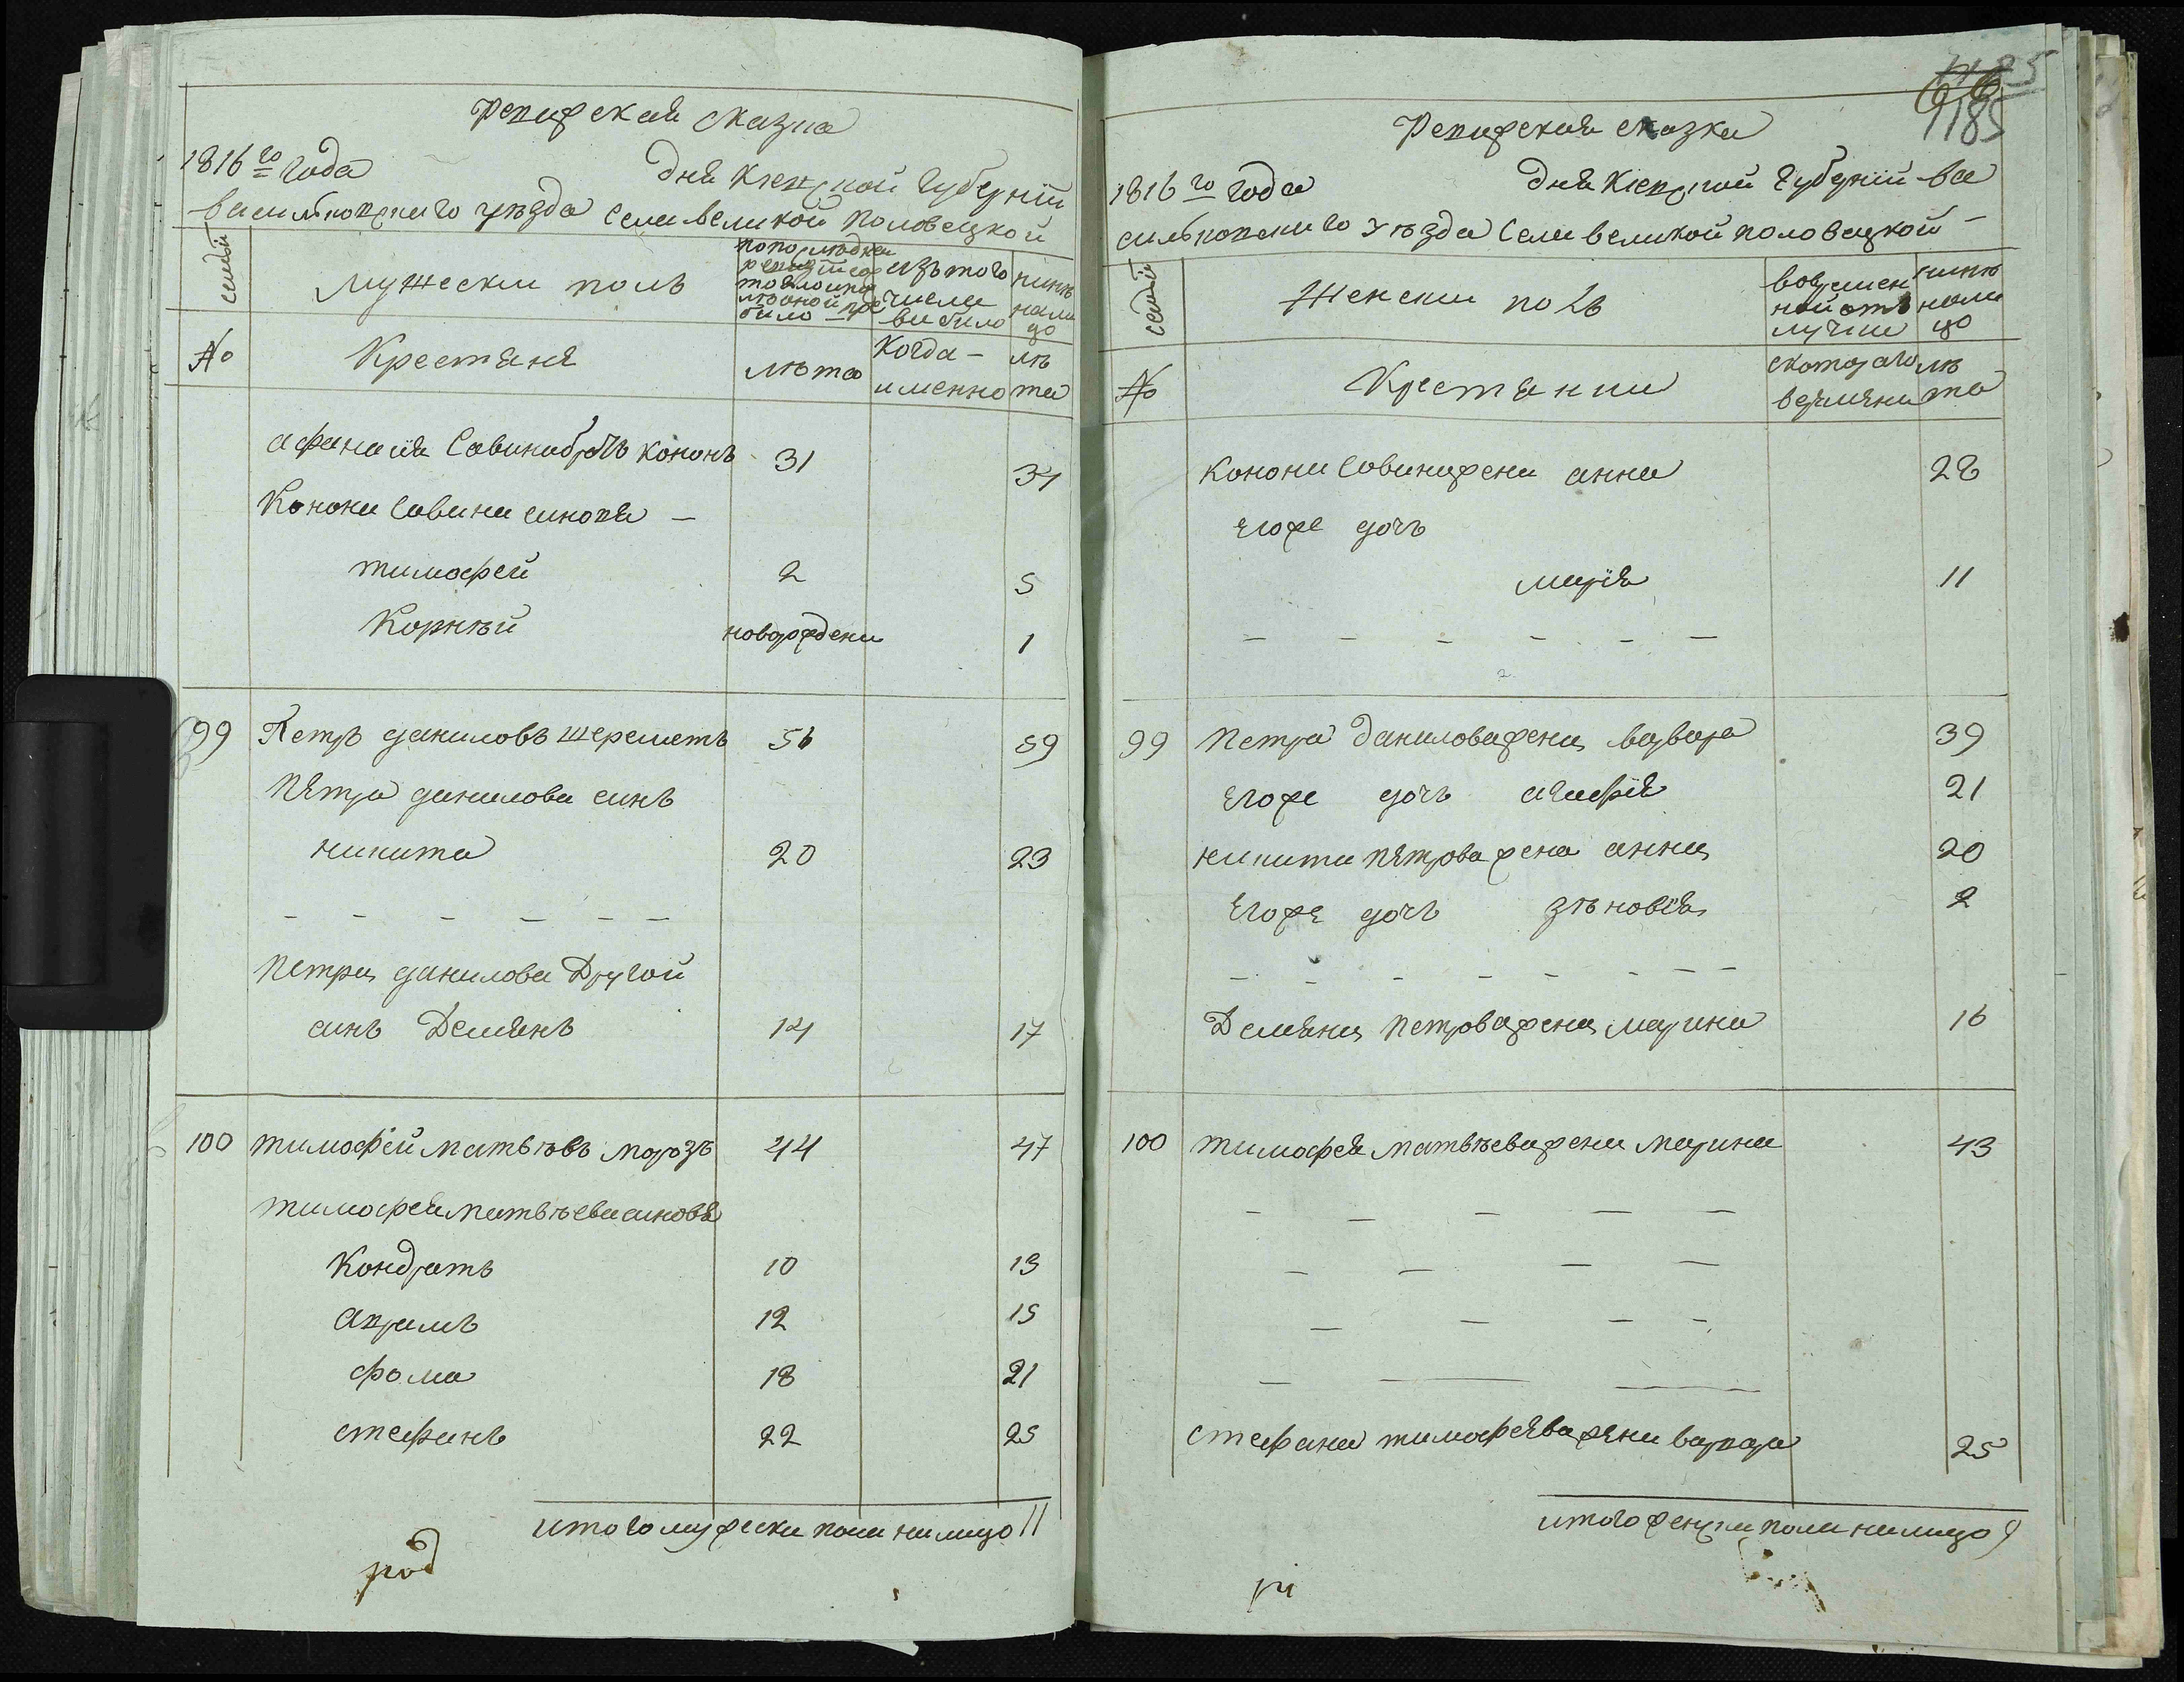 Ревизская сказка
1816 го года дня Киевской губернїи
васильковского уезда села великой половецкой
семьи
мужеска полъ
по последней ревизїи состояло и после оной прибило
изъ того числа вибило
нине на лицо
№
Крестяня
лѣта
когда именно
лѣта
афанасия Савина братъ кононъ 31 34
Конона Савина синовя —
тимофей 2 5
Корнѣй новорождени 1
99 Петръ даниловъ шереметъ 56 59
Пятра данилова синъ
никита 20 23
— — — — — —
Петра данилова Другой
синъ Демянъ 14 17
100 тимофей матвѣевъ морозъ 44 47
тимофея матвѣева синовя
Кондратъ 10 13
Аврамъ 12 15
фома 18 21
стефанъ 22 25
итого мужеска пола на лицо 11
род
1185
Ревизская сказка
1816 го года дня Киевской губернїи ва
сильковского уѣзда Села великой половецкой —
семьи
Женски полъ
во временной отлучки
нинѣ на лицо
№
Крестянки
скотораго времяни
лѣта
Конона Савина жена анна 28
Егоже дочъ
марїя 11
— — — — — —
99 Петра Данилова жена варвара 39
Егоже дочъ агафїя 21
никити пятрова жена анна 20
Егожя дочъ зѣновїя 2
— — — — — — — —
Демяна Петрова жена марина 16
100 тимофея матвѣева жена марина 43
— — — — —
— — — —
— — — —
— — —
Стефана тимофяева жяна варвара 25
итого женска пола на лицо 9